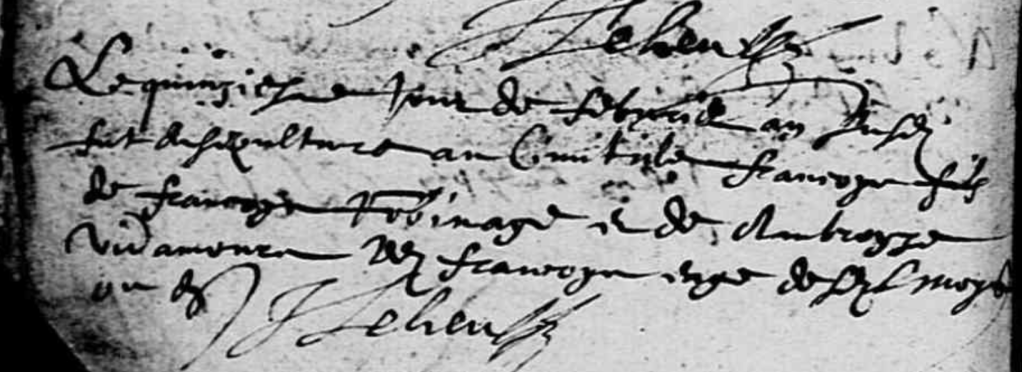 Leheu
Le quinziesme Jour de febvrier an susd
fut desepulture au Cimitiere francoys fils
de francoys Robinage et de Ambroyse
Vidamour led francoys aige de six moys
ou
Leheu